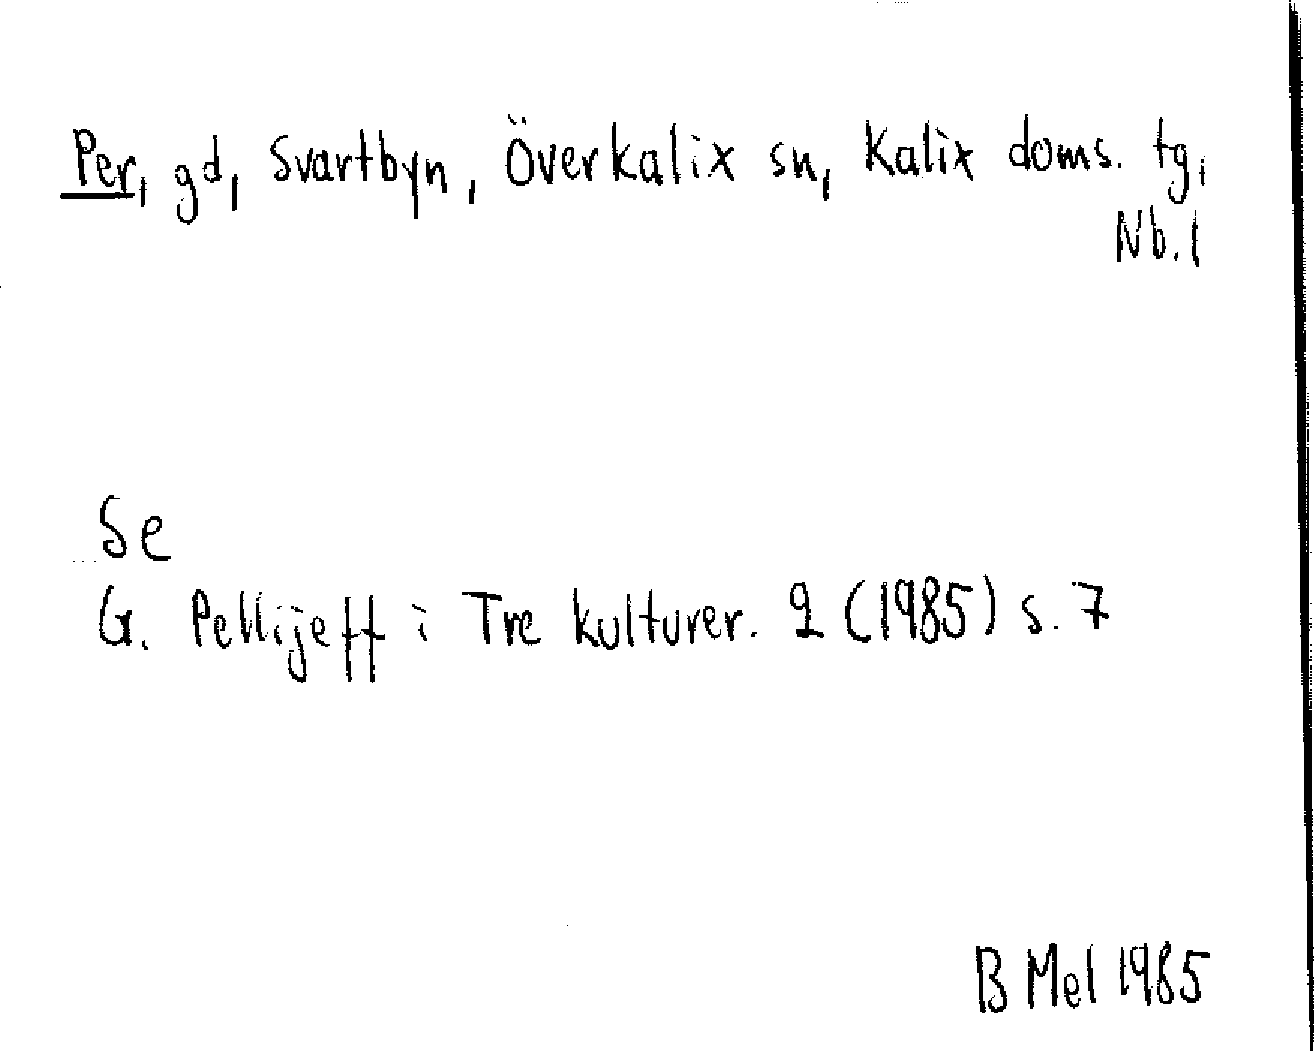 Per, gd, Svartbyn, Överkalix sn, Kalix doms. tg,
Nb. l
Se
G. Pellijeff i Tre kulturer. 2 (1985) s. 7
B Mel 1985